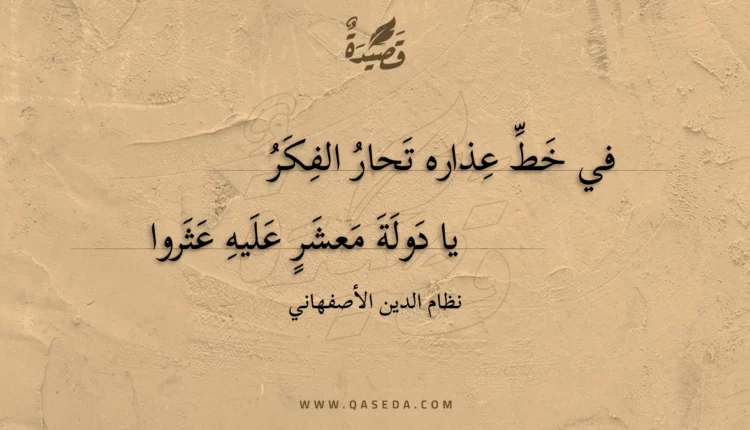 قَصِيدَةٌ
في خَطِّ عِذاره تَحارُ الفِكَرُ
يا دَولَةَ مَعشَرٍ عَلَيهِ عَثَروا
نظام الدين الأصفهاني
WWW.QASEDA.COM